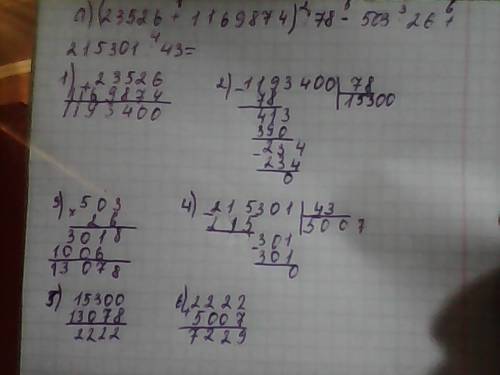 а)(23526 + 1169874) : 78 - 503 · 26 +
215301 : 43 =
1) + 23526
1169874
1193400
2) - 1193400 | 78
78 | 15300
413
390
- 234
234
0
3) × 503
26
3018
1006
13078
4) - 215301 | 43
215 | 5007
- 301
301
0
5) 15300
13078
2222
6) + 2222
5007
7229